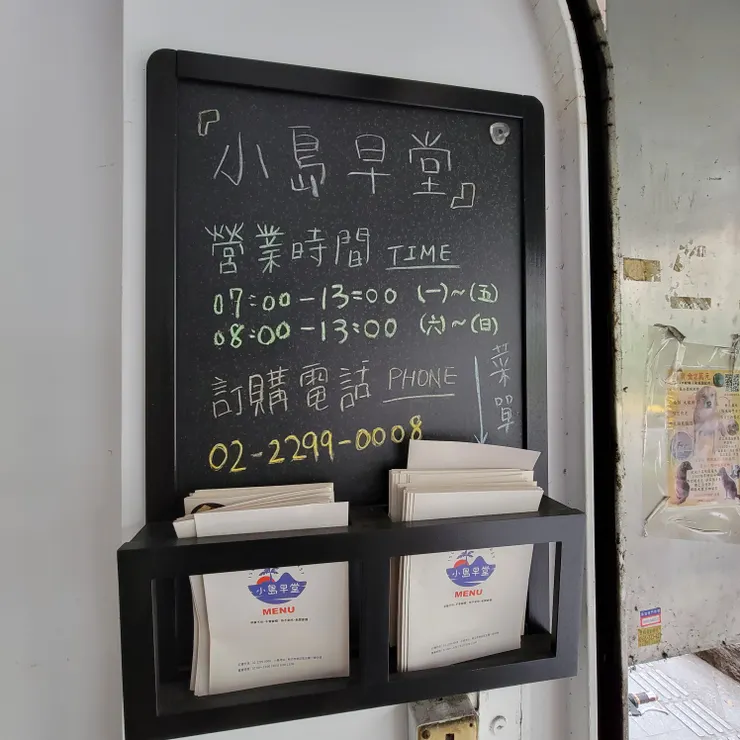 『小島早堂』
營業時間 TIME
07:00-13:00 (一)~(五)
08:00-13:00 (六)~(日)
訂購電話 PHONE
02-2299-0008
菜單
小島早堂
MENU
小島早堂
MENU